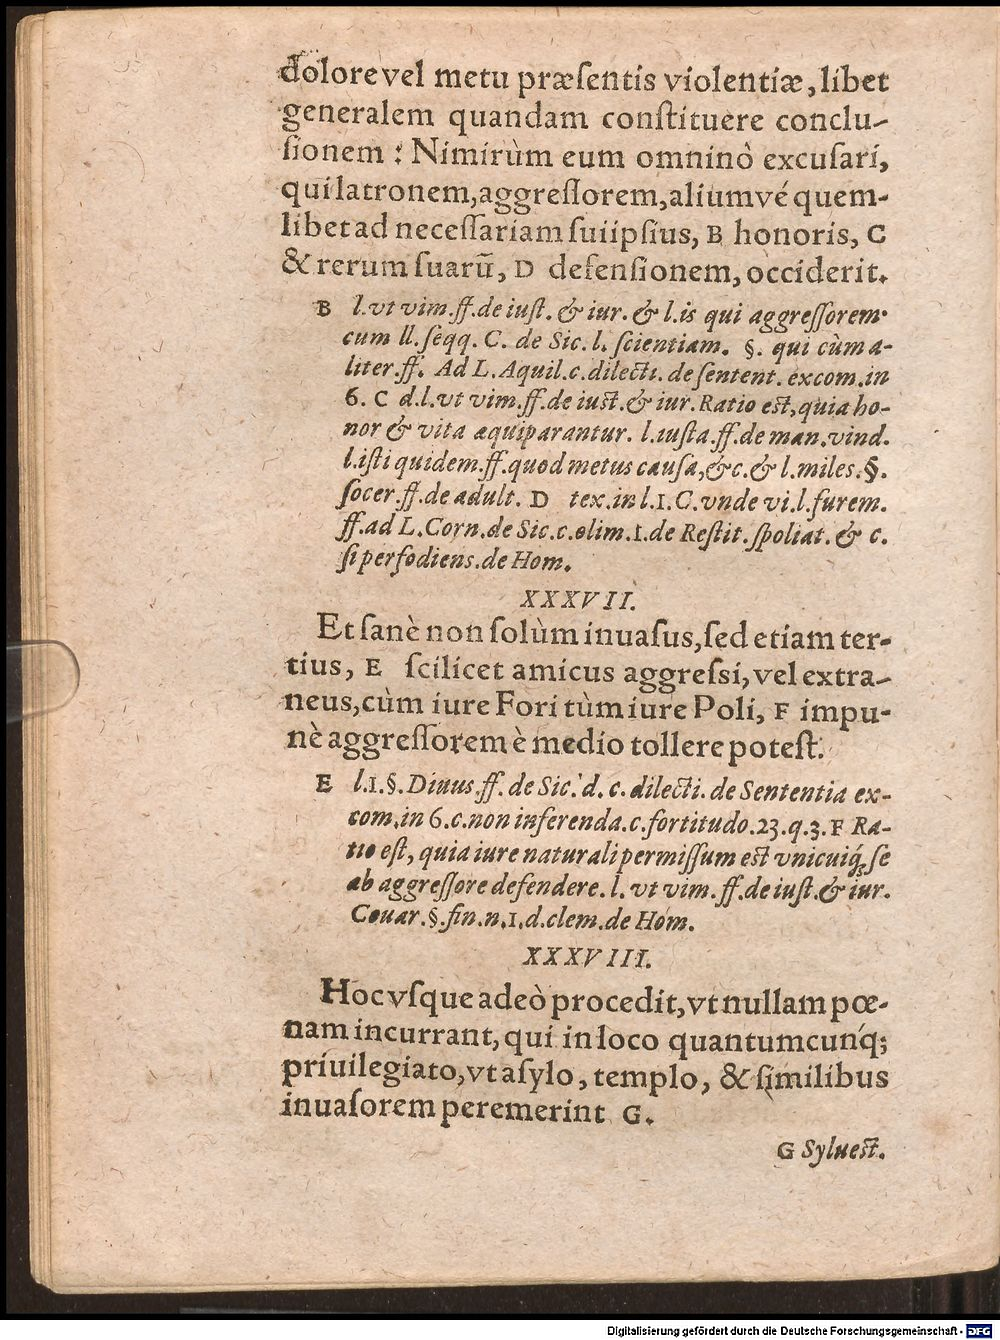 dolore vel metu præſentis violentiæ, libet
generalem quandam conſtituere conclu-
ſionem : Nimirùm eum omninò excuſari,
qui latronem, aggreſſorem, aliumvé quem-
libet ad neceſſariam ſuiipſius, B honoris, C
& rerum ſuarū, D defenſionem, occiderit.
B l. vt vim. ff. de iuſt. & iur. & l. is qui aggreſſorem.
cum ll. ſeqq. C. de Sic. l. ſcientiam. §. qui cùm a-
liter. ff. Ad L. Aquil. c. dilecti. de ſentent. excom. in
6. C d. l. vt vim. ff. de iuſt. & iur. Ratio eſt, quia ho-
nor & vita æquiparantur. l. iuſta. ff. de man. vind.
l. iſti quidem. ff. quod metus cauſa, &c. & l. miles. §.
ſocer. ff. de adult. D tex. in l. 1. C. vnde vi. l. furem.
ff. ad L. Corn. de Sic. c. olim. 1. de Reſtit. ſpoliat. & c.
ſi perfodiens. de Hom.
XXXVII.
Et ſanè non ſolùm inuaſus, ſed etiam ter-
tius, E ſcilicet amicus aggreſsi, vel extra-
neus, cùm iure Fori tùm iure Poli, F impu-
nè aggreſſorem è medio tollere poteſt.
E l. 1. §. Diuus. ff. de Sic. d. c. dilecti. de Sententia ex-
com. in 6. c. non inferenda. c. fortitudo. 23. q. 3. F Ra-
tio eſt, quia iure naturali permiſſum eſt vnicuiq́; ſe
ab aggreſſore defendere. l. vt vim. ff. de iuſt. & iur.
Couar. §. fin. n. 1. d. clem. de Hom.
XXXVIII.
Hoc vſque adeò procedit, vt nullam pœ-
nam incurrant, qui in loco quantumcunq́;
priuilegiato, vt aſylo, templo, & ſimilibus
inuaſorem peremerint G.
G Sylueſt.
Digitalisierung gefördert durch die Deutsche Forschungsgemeinschaft - DFG